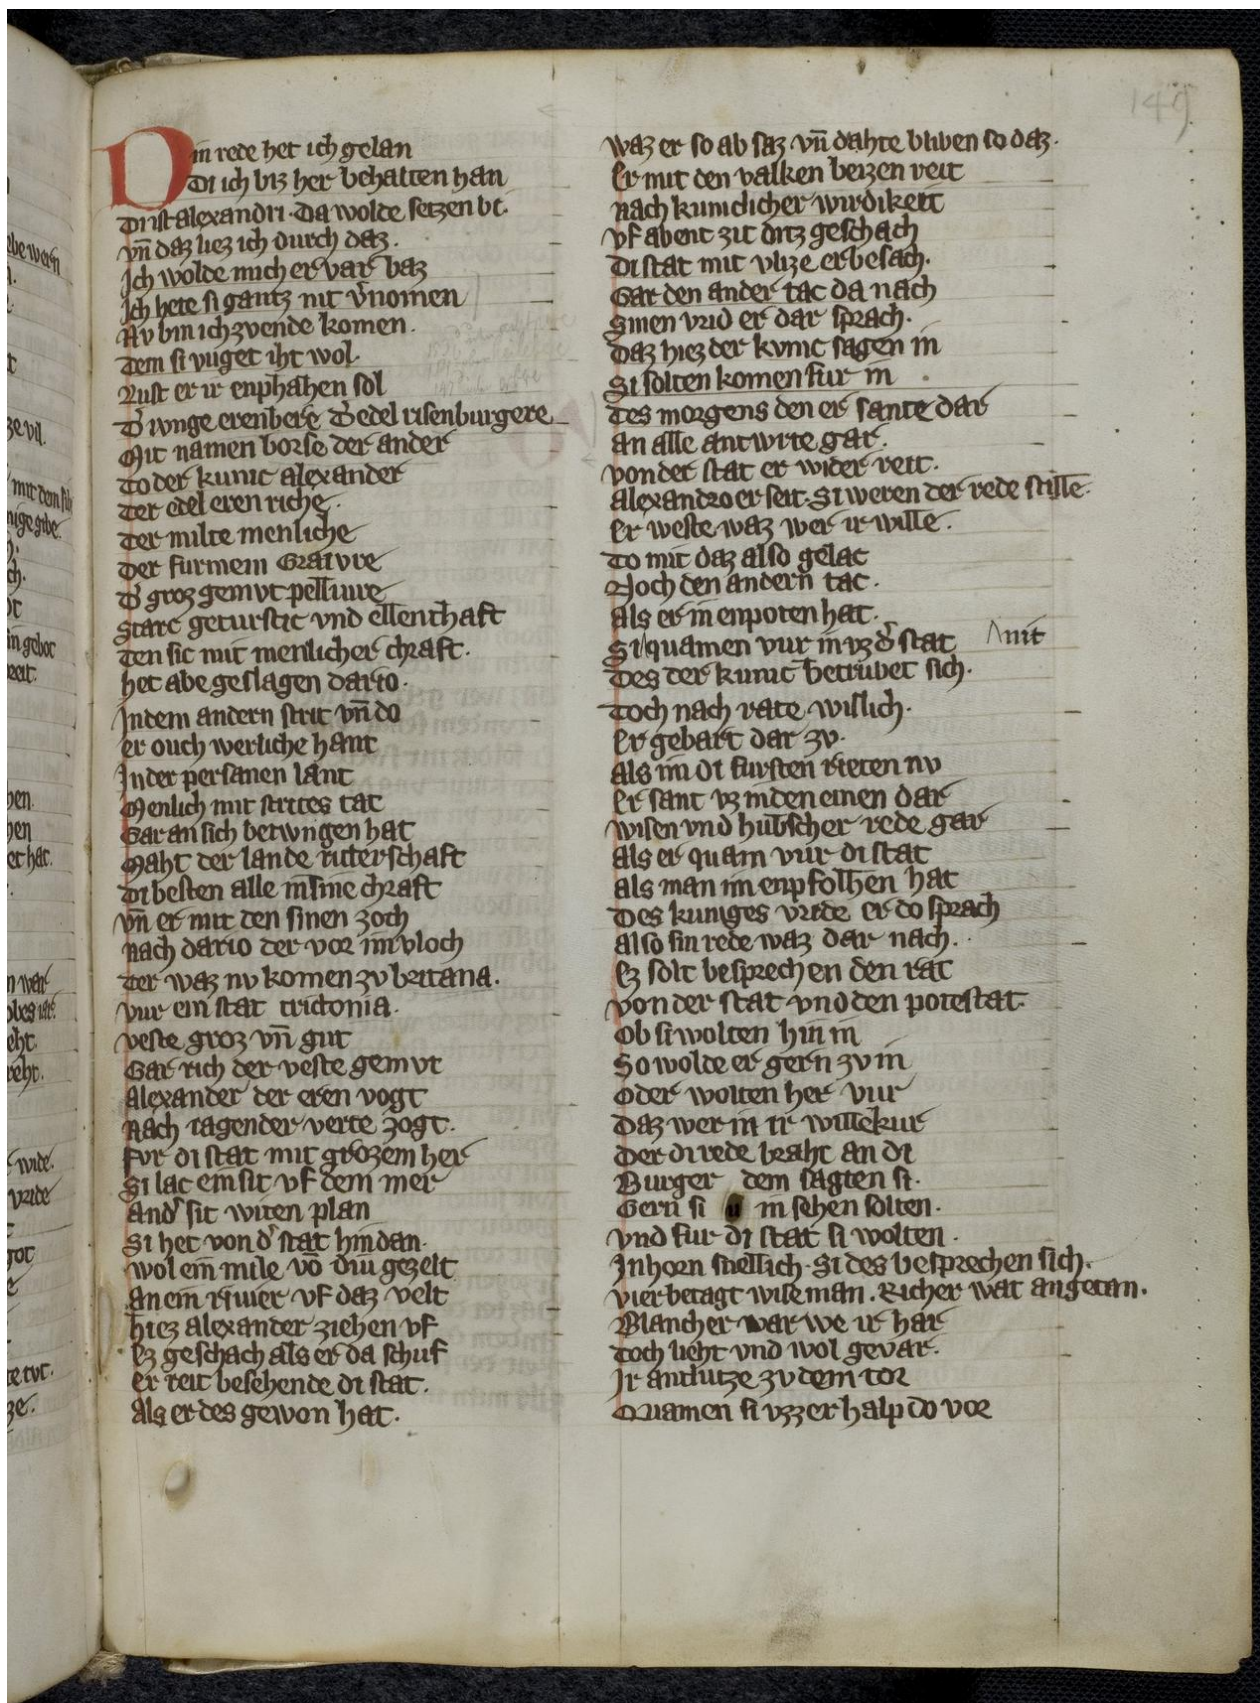 Din rede het ich gelan
Di ich biz her behalten han
Di ist alexandri · Da wolde setzen bi.
vn̄ daz liez ich durch daz.
Ich wolde mich ervar baz
Ich hete si gantz nit v̉nomen
Nv bin ich zvende komen.
Dem si vuget iht wol.
Rust er ir enphahen sol
D̉ iunge erenbere D̉ edel risenburgere
Mit namen borse der ander
Do der kunic alexander
Der edel eren riche.
Der milte menliche
Der furmein
D̉ groz gemvt
Starc geturstic vnd ellenthaft
Den sic mit menlicher chraft.
het abe geslagen dario.
In dem andern strit vn̄ do
er ouch werliche hant
In der persanen lant
Menlich mit strites tat
Gar an sich betwngen hat
Maht der lande ritterschaft
Di besten alle in sine chraft
vn̄ er mit den sinen zoch
Nach dario der vor im vloch
Der waz nv komen zv britana.
vur ein stat trictonia.
veste groz vn̄ gut
Gar rich der veste gemvt
Alexander der eren vogt
Nach tagender verte zogt.
Fvr di stat mit grozem her
Si lac ein sit vf dem mer
And̉ sit witen plan
Si het von d̉ stat hin dan.
wol ein mile vō diu gezelt
an ein riuier vf daz velt
hiez alexander ziehen vf
Ez geschach als er da schuf
Er reit besehende di stat.
Als er des gewon hat.
waz er so ab saz vn̄ dahte bliben so daz.
Er mit den valken beizen reit
Nach kuniclicher wirdikeit
vf abent zit ditz geschach
Di stat mit vlize er besach.
Gar den ander tac da nach
Sinen vrid er dar sprach.
Daz hiez der kvnic sagen in
Si solten komen fur in
Des morgens den er sante dar
an alle antwrte gar.
von der stat er wider reit.
Alexandro er seit · Si weren der rede stille.
Er weste waz wer ir wille.
Do mit daz also gelac
Noch den andern tac.
Als er in enpoten hat.
Si quamen vur in vz d̉ stat nit
Des der kunic betrubet sich.
Doch nach rate wislich.
Er gebart dar zv.
Als im di fursten rieten nv
Er sant vz in den einen dar
wisen vnd hubscher rede gar
Als er quam vur di stat
als man im enpfolhen hat
Des kuniges vride er do sprach
Also sin rede waz dar nach.
Ez solt besprechen den rat
von der stat vnd den potestat.
Ob si wolten hin in
So wolde er gern zv in
Oder wolten her vur
Daz wer in ir willekur
Der di rede braht an di
Burger dem sagten si.
Gern si in sehen solten.
vnd fur di stat si wolten.
In horn snellich · Si des besprechen sich.
vier betagt wise man · Richer wat angetan.
Blancher war we ir har
Doch lieht vnd wol gevar.
Ir antlutze zv dem tor
Quamen si vz zer halp do vor